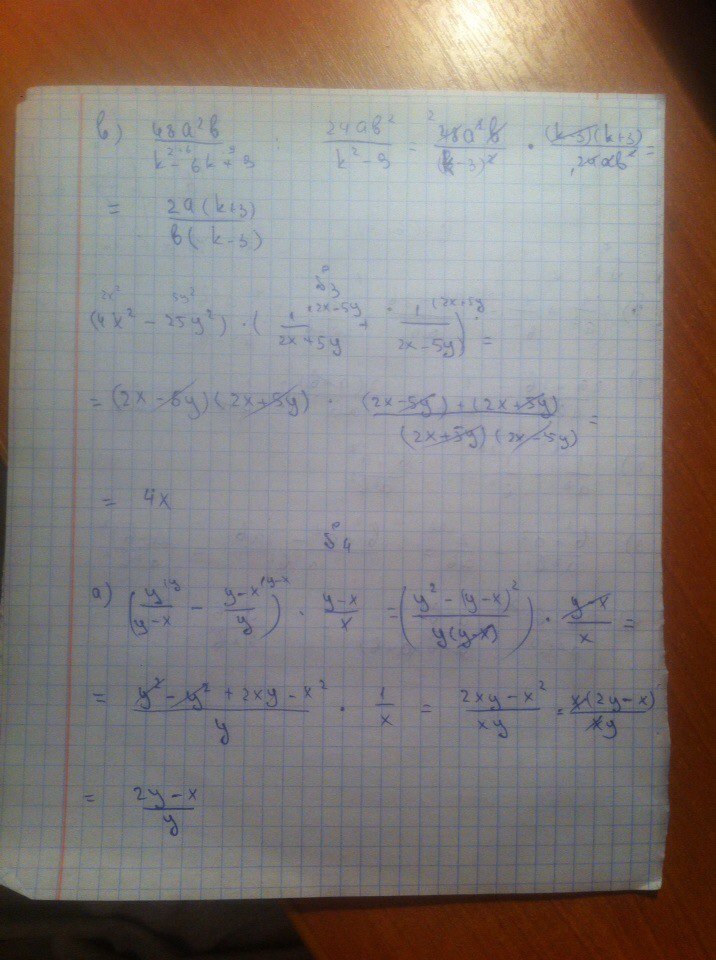 в) 48a²b / (k² - 6k + 9) : 24ab² / (k² - 9) = 48a²b / (k-3)² · (k-3)(k+3) / 24ab² =
= 2a(k+3) / b(k-3)
№3
(4x² - 25y²) · (1 / (2x+5y) + 1 / (2x-5y)) =
= (2x-5y)(2x+5y) · ((2x-5y)+(2x+5y)) / ((2x+5y)(2x-5y)) =
= 4x
№4
а) (y / (y-x) - (y-x) / y) · (y-x) / x = ((y² - (y-x)²) / (y(y-x))) · (y-x) / x =
= (y² - y² + 2xy - x²) / y · 1 / x = (2xy - x²) / xy = x(2y-x) / xy
= (2y-x) / y